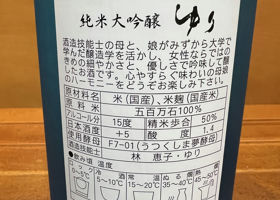 純米大吟醸 ゆり
酒造技能士の母と、娘がみずから大学で
学んだ醸造学を活かし、女性ならではの
きめの細やかさと、優しさで吟味して醸し
んだお酒です。心やすらぐ味わいの母娘
のハーモニーをどうぞお楽しみ下さい。
原材料名 米(国産)、米麹(国産米)
原料米 五百万石100%
アルコール分 15度 精米歩合 50%
日本酒度 +5 酸度 1.4
使用酵母 F7-01(うつくしま夢酵母)
酒造技能士 林 恵子・ゆり
●飲み頃 温度
冷 常温 ぬる燗
0~3℃ 5~10℃ 15~20℃ 35~40℃